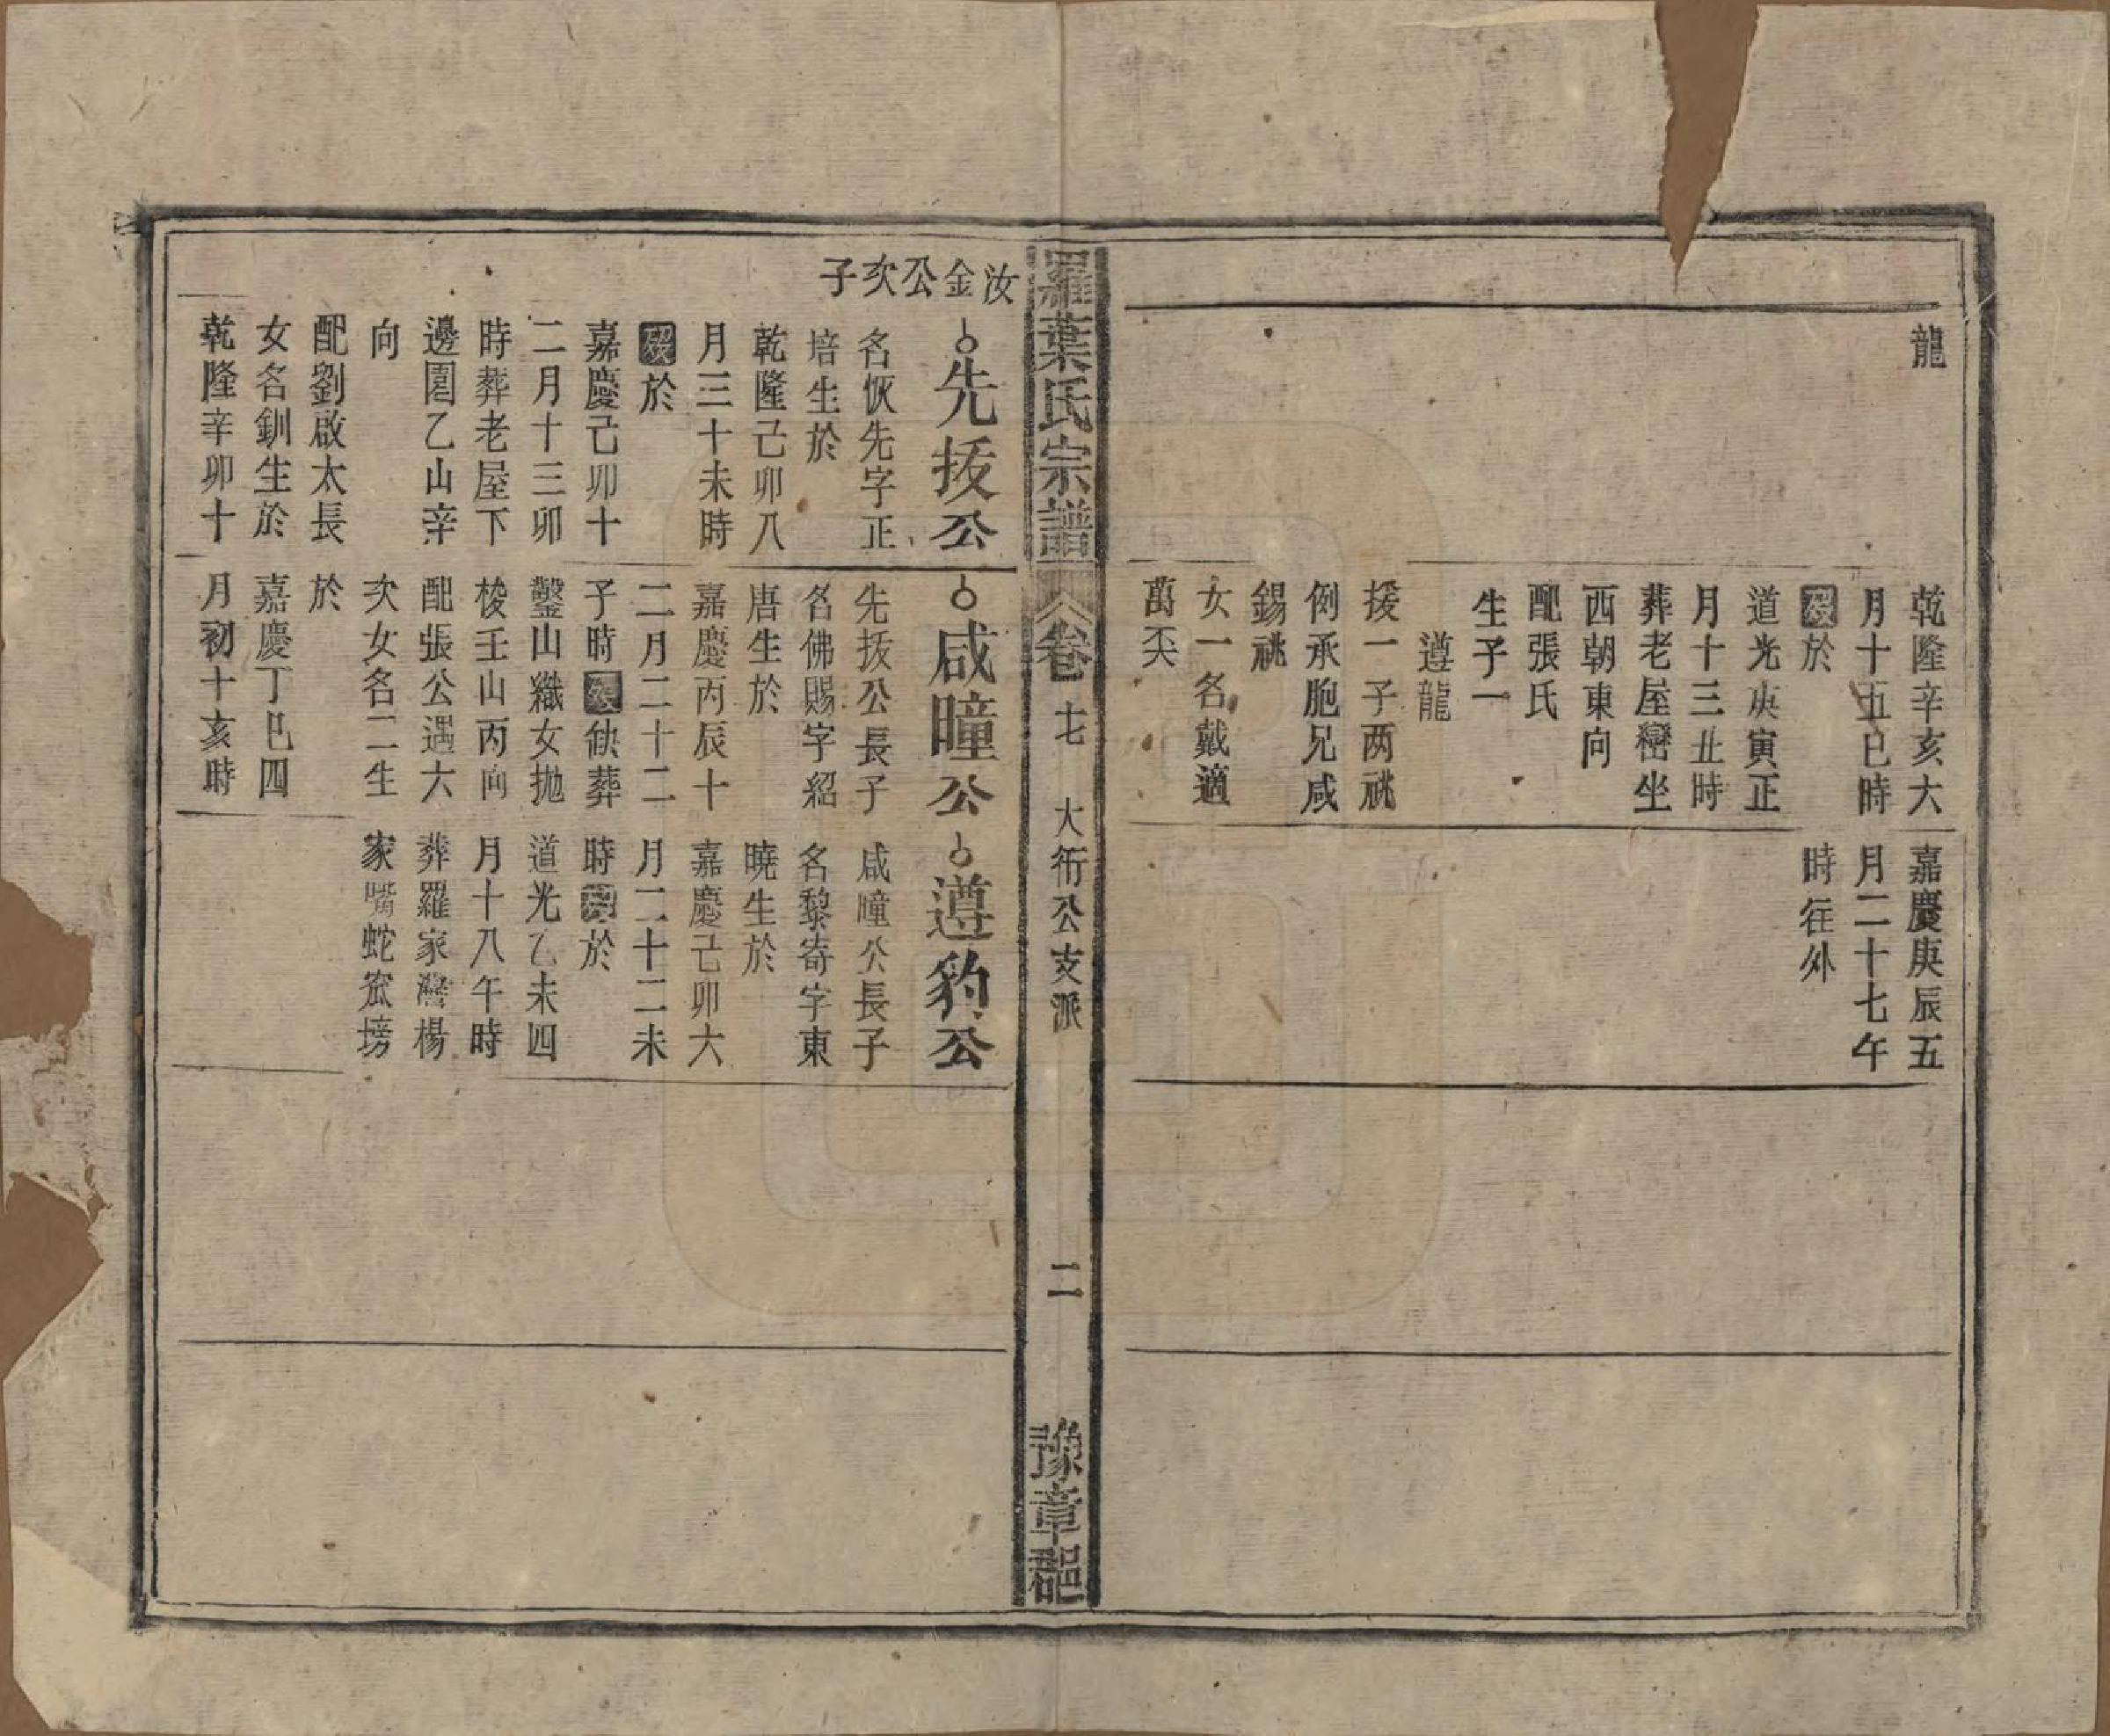 龍
乾隆辛亥大
月十五巳時
歿於
道光庚寅正
月十三丑時
葬老屋巒坐
西朝東向
配張氏
生子一
遵龍
援一子两祧
例承胞兄咸
錫祧
女一名戴適
萬天
嘉慶庚辰五
月二十七午
時往外
羅葉氏宗譜
卷七
大衍公支派
二
豫章郡
汝金公次子
先拔公
名恢先字正
培生於
乾隆己卯八
月三十未時
歿於
嘉慶己卯十
二月十三卯
時葬老屋下
邊園乙山辛
向
配劉啟太長
女名釧生於
乾隆辛卯十
月初十亥時
咸曈公
先拔公長子
名佛賜字紹
唐生於
嘉慶丙辰十
二月二十二
子時歿缺葬
鑿山織女拋
梭壬山丙向
配張公遇大
次女名二生
於
嘉慶丁巳四
遵豹公
咸曈公長子
名黎寄字東
曉生於
嘉慶己卯六
月二十二未
時歿於
道光乙未四
月十八午時
葬羅家灣楊
家嘴蛇窊塝